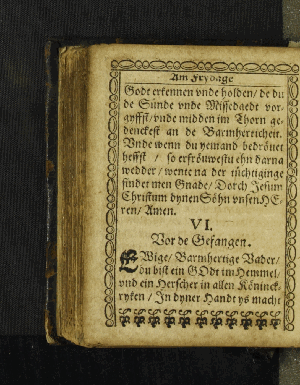 Am Frydage
Godt erkennen vnde holden/ de du
de Sünde vnde Missedaedt vor-
gyffst/ vnde midden im Thorn ge-
denckest an de Barmherticheit.
Vnde wenn du yemand bedröuet
heffst / so erfröuwestu ehn darna
wedder/ wente na der tüchtiginge
findet men Gnade/ Dorch Jesum
Christum dynen Söhn vnsen HE-
ren/ Amen.
VI.
Vor de Gefangen.
EWige/ Barmhertige Vader/
du bist ein GOdt im Hemmel/
vnd ein Herscher in allen Köninck-
ryken / In dyner Handt ys macht